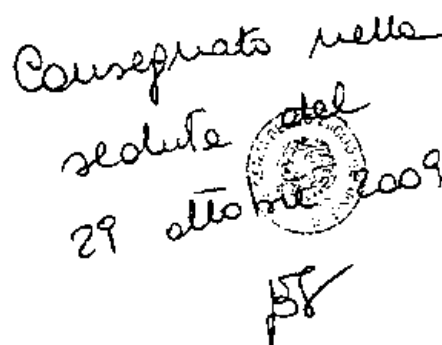 Consegnato nella
seduta del
29 ottobre 2009